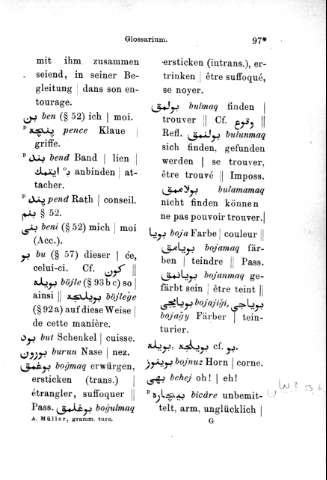 Glossarium. 97*
mit ihm zusammen
seiend, in seiner Be-
gleitung | dans son en-
tourage.
بن ben (§ 52) ich | moi.
ᴾ پنچه pence Klaue |
griffe.
ᴾ بند bend Band | lien |
ایتمك ° anbinden | at-
tacher.
ᴾ پند pend Rath | conseil.
بنم § 52.
بنی beni (§ 52) mich | moi
(Acc.).
بو bu (§ 57) dieser | ce,
celui-ci. Cf. كون ||
بویله böjle (§ 93 b c) so |
ainsi || بویلجه böjleǵe
(§ 92 a) auf diese Weise |
de cette manière.
بود but Schenkel | cuisse.
بورون burun Nase | nez.
بوغمق boğmaq erwürgen,
ersticken (trans.) |
étrangler, suffoquer ||
Pass. بوغلمق boğulmaq
ersticken (intrans.), er-
trinken | être suffoqué,
se noyer.
بولمق bulmaq finden |
trouver || Cf. وقوع ||
Refl. بولنمق bulunmaq
sich finden, gefunden
werden | se trouver,
être trouvé || Imposs.
بولامامق bulamamaq
nicht finden können |
ne pas pouvoir trouver.
بویا boja Farbe | couleur ||
بویامق bojamaq fär-
ben | teindre || Pass.
بویانمق bojanmaq ge-
färbt sein | être teint ||
بویاجی, بویایجی bojajiǵi,
bojaǵy Färber | tein-
turier.
بویله, بویلجه cf. بو.
بوینوز bojnuz Horn | corne.
بهی behej oh! | eh!
ᴾ بیچاره bicāre unbemit-
telt, arm, unglücklich |
A. Müller, gramm. turc. G